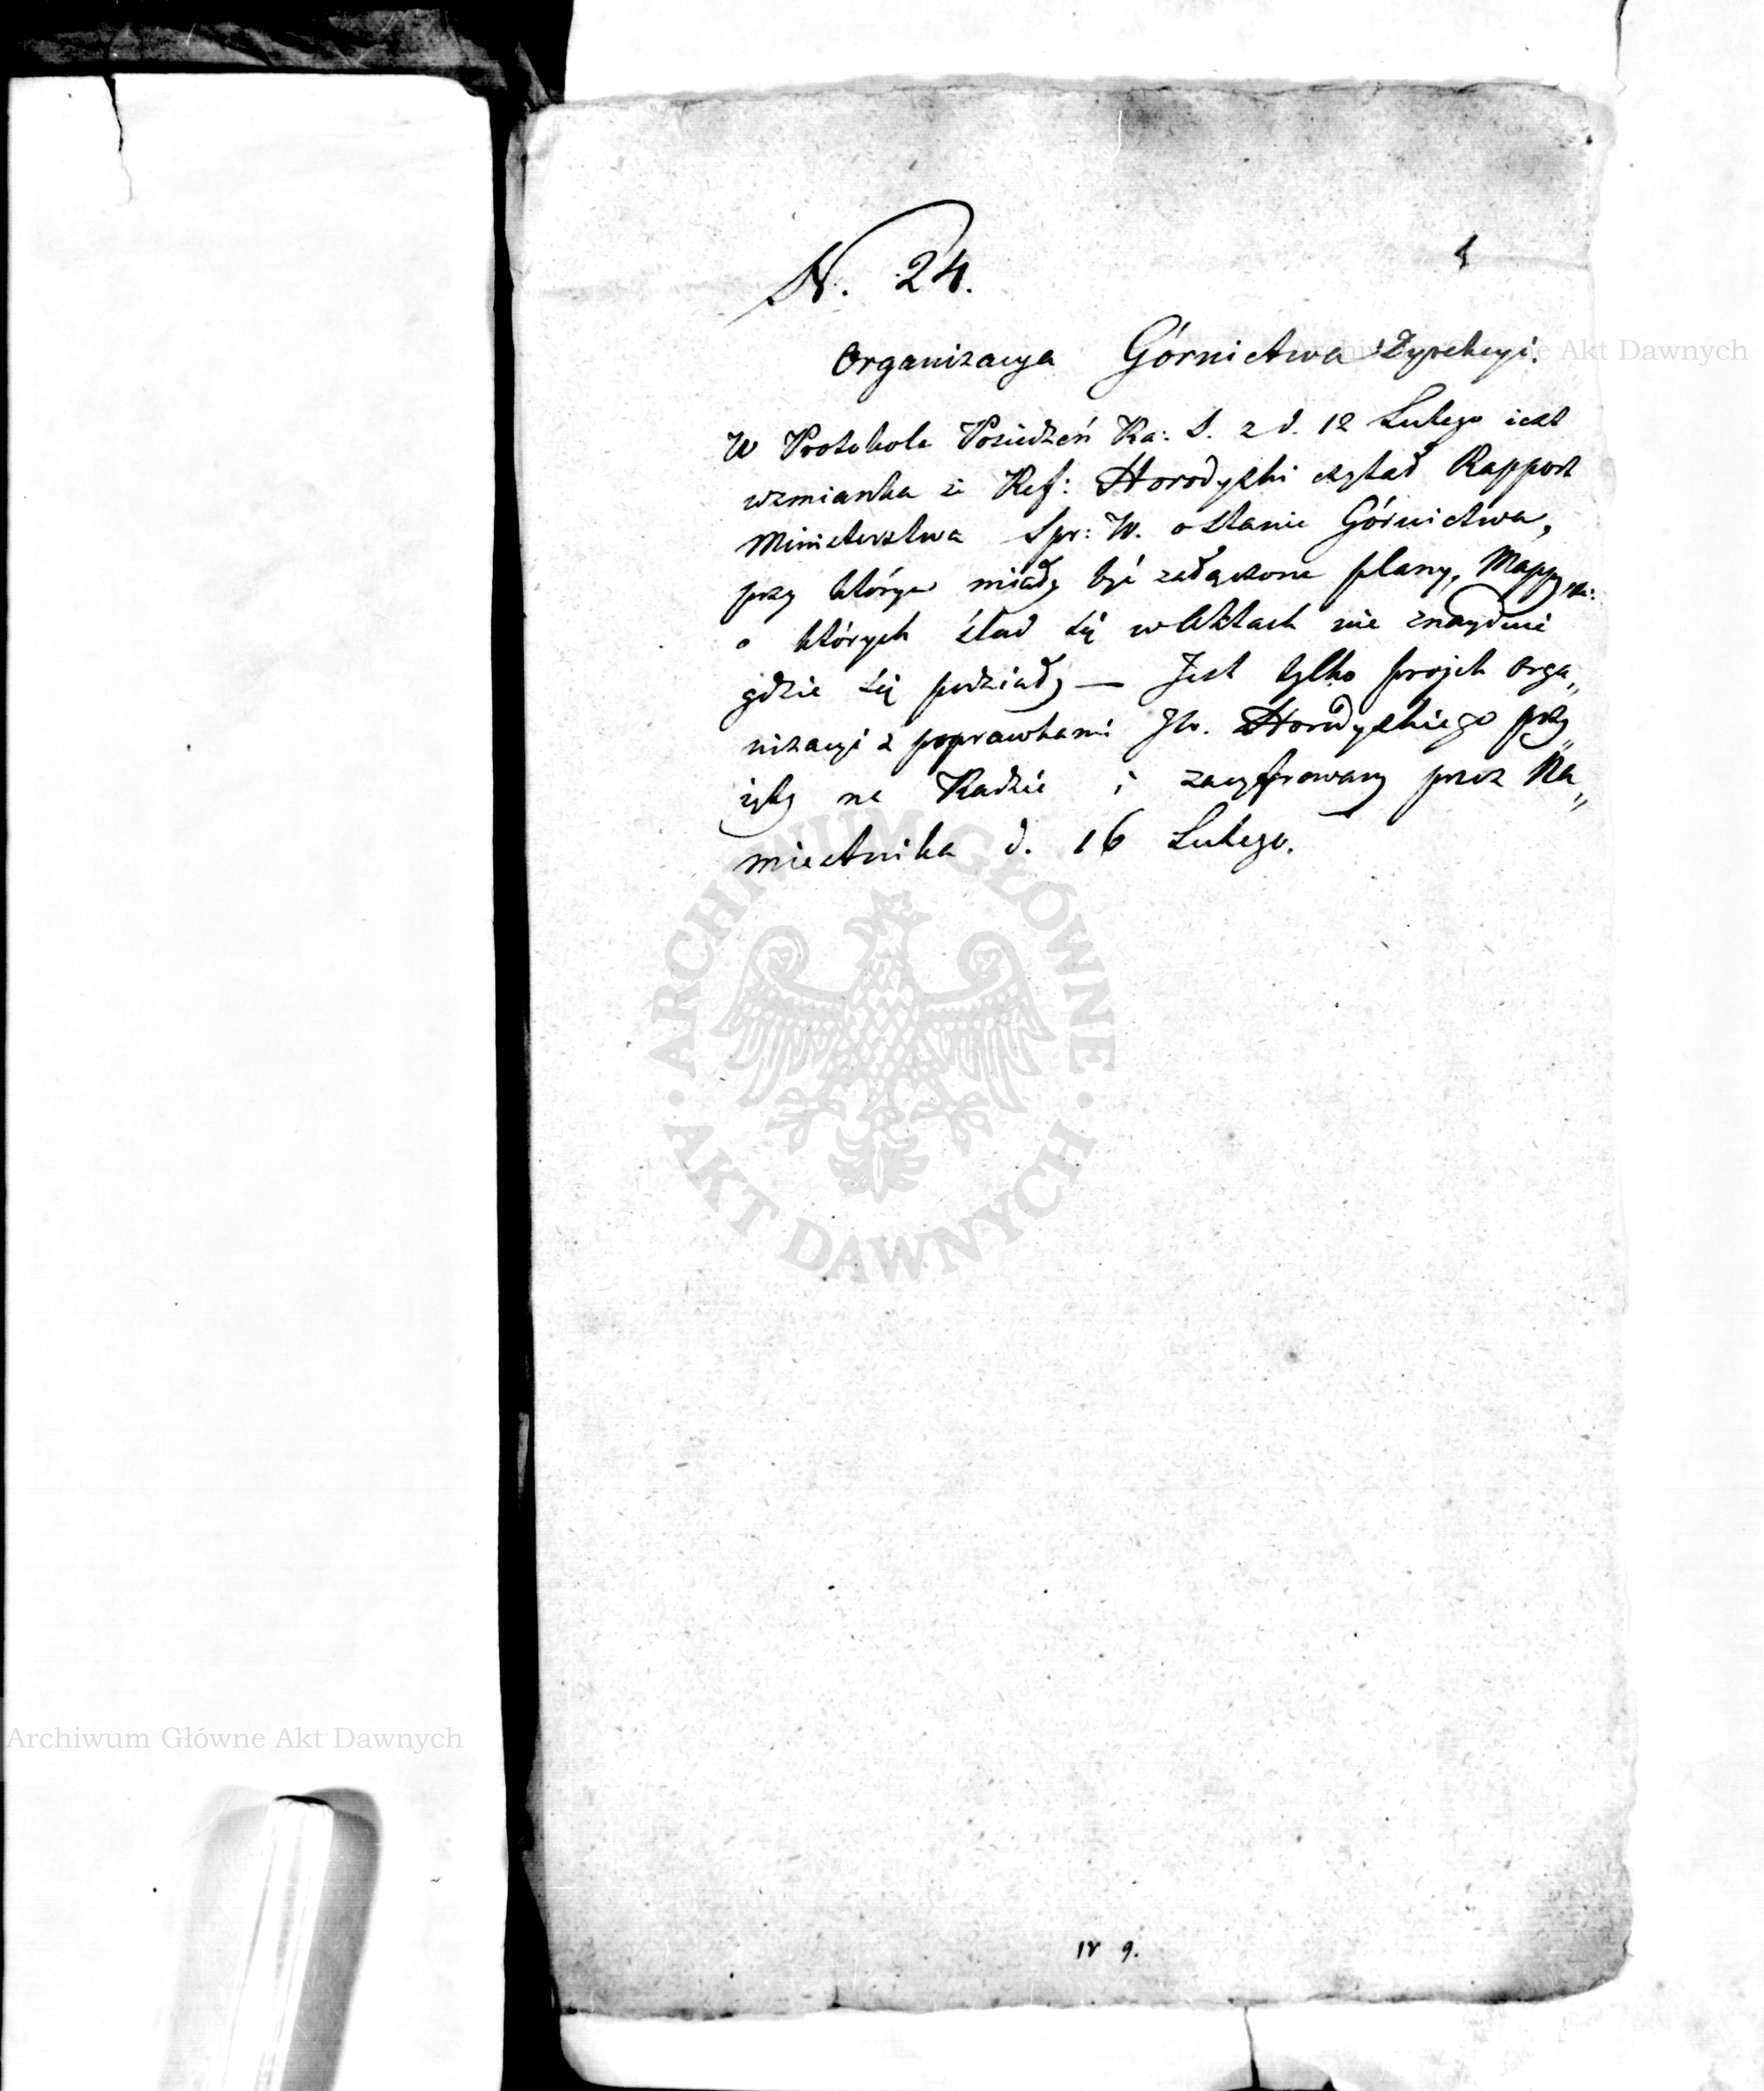 1
N. 24.
Organizacya Górnictwa i Dyrekcyi.
W Protokole Posiedzeń Ra: S. z d. 12 Lutego iest
wzmianka że Ref: Horodyski czytał Rapport
Ministerstwa Spr: W. o stanie Górnictwa,
przy którym miały być załączone plany, Mappy
o których ślad się w Aktach nie znayduie
gdzie się podziały — Jest tylko projekt Orga„
nizacyi z poprawkami JW. Horodyskiego przy„
ięty na Radzie i zacyfrowany przez Na„
miestnika d. 16 Lutego.
9.
ARCHIWUM GŁÓWNE AKT DAWNYCH
Archiwum Główne Akt Dawnych
Archiwum Główne Akt Dawnych